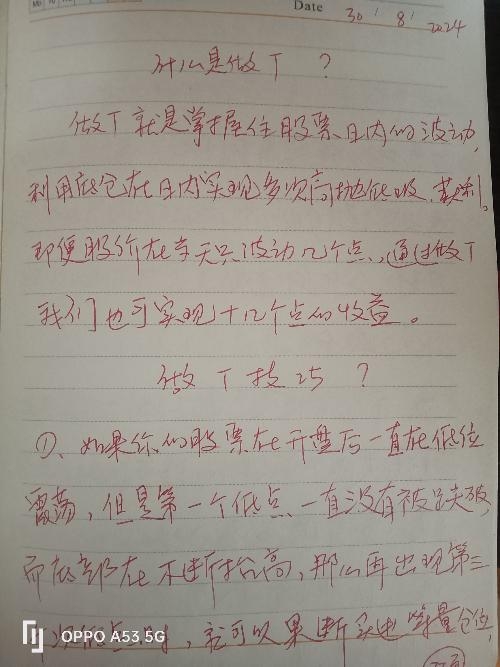 Date 30 / 8 / 2024
什么是做T ?
做T就是掌握住股票日内的波动,
利用底仓在日内实现多次高抛低吸,获利。
即便股价在当天只波动几个点,通过做T
我们也可实现十几个点的收益。
做T技巧 ?
①、如果你的股票在开盘后一直在低位
震荡,但是第一个低点一直没有被跌破,
而底部在不断抬高,那么再出现第三
次低点时,就可以果断买进等量仓位,
OPPO A53 5G